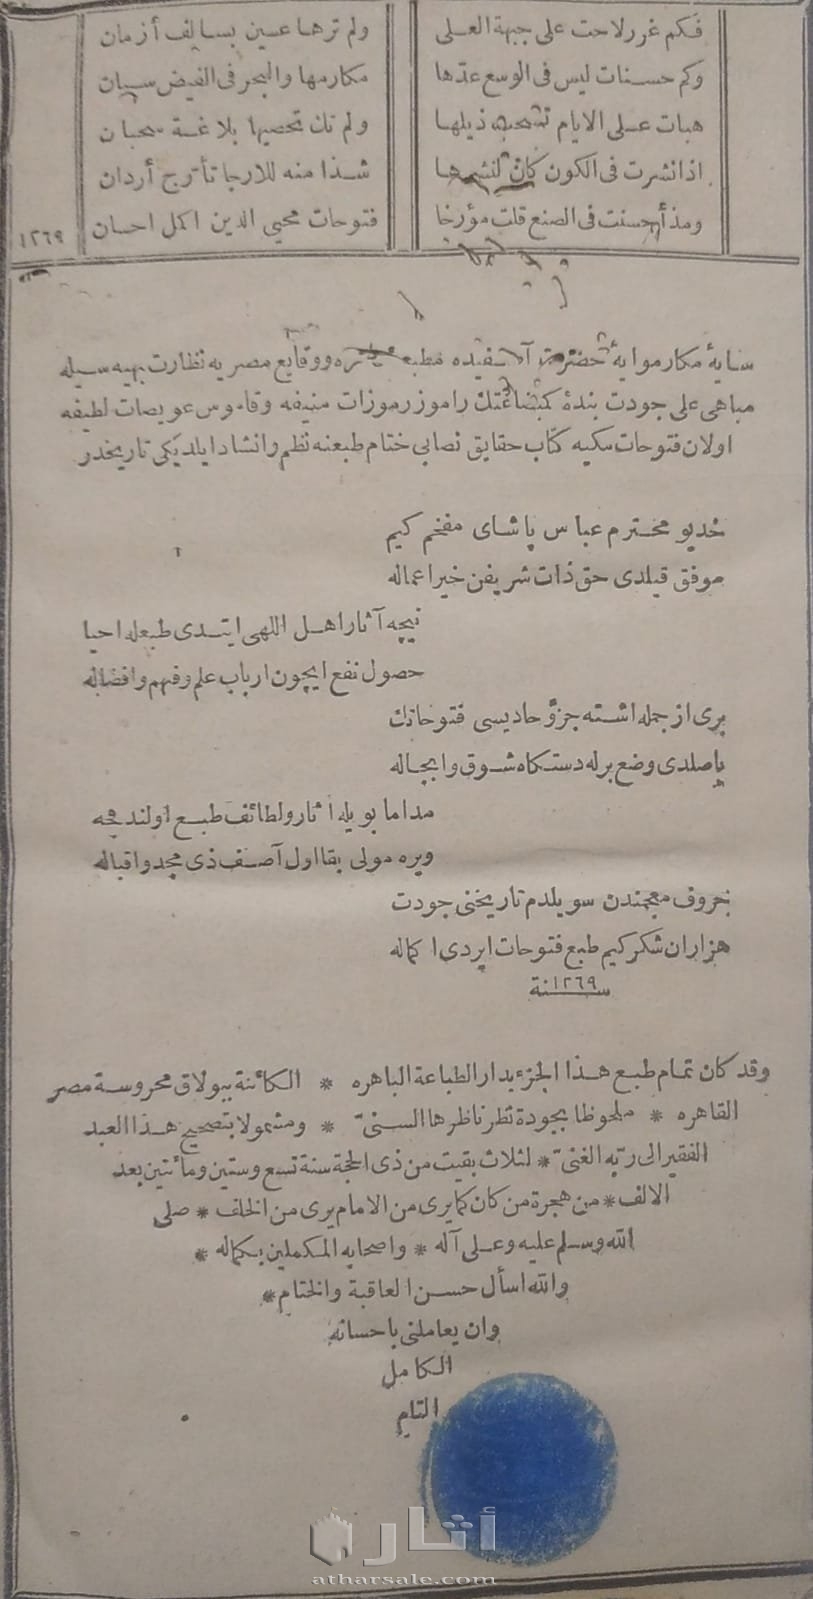 فكم غرر لاحت على جبهة العلى ولم ترها عين بسالف أزمان
وكم حسنات ليس فى الوسع عدّها مكارمها والبحر فى الفيض سيان
هبات على الايام تسحب ذيلها ولم تك تحصيها بلاغة سحبان
اذا نشرت فى الكون كان لنشرها شذا منه للارجا تأرج أردان
ومذ أحسنت فى الصنع قلت مؤرخا فتوحات محيي الدين اكمل احسان ١٢٦٩
سايۀ مكارموايۀ حضرت آصفيده مطبعۀ ووقايع مصريه نظارت بهيه سيله
مباهى على جودت بندۀ كمبضاعتك راموز رموزات منيفه وقاموس عويصات لطيفه
اولان فتوحات مكيه كتاب حقايق نصابى ختام طبعنه نظم وانشاد ايلديكى تاريخدر
خديو محترم عباس پاشاى مفخم كيم
موفق قيلدى حق ذات شريفن خير اعماله
نيچه آثار اهل اللهى ايتدى طبعله احيا
حصول نفع ايچون ارباب علم وفهم وافضاله
برى از جمله اشته جزؤ حاديسى فتوحاتك
پاصلدى وضع برله دستكاه شوق وابجاله
مداما بويله اثار ولطائف طبع اولندقجه
ويره مولى بقا اول آصف ذى مجد واقباله
حروف معجمندن سويلدم تاريخنى جودت
هزاران شكر كيم طبع فتوحات ايردى اكماله
سنة ١٢٦٩
وقد كان تمام طبع هذا الجزء بدار الطباعة الباهره * الكائنة ببولاق محروسة مصر
القاهره * ملحوظا بجودة نظر ناظرها السنىّ * ومشمولا بتصحيح هذا العبد
الفقير الى ربّه الغنىّ * لثلاث بقيت من ذى الحجة سنة تسع وستين ومائتين بعد
الالف * من هجرة من كان كما يرى من الامام يرى من الخلف * صلى
الله وسلم عليه وعلى آله * واصحابه المكملين بكماله *
والله اسأل حسن العاقبة والختام *
وان يعاملنى باحسانه
الكامل
التام
أثار
atharsale.com